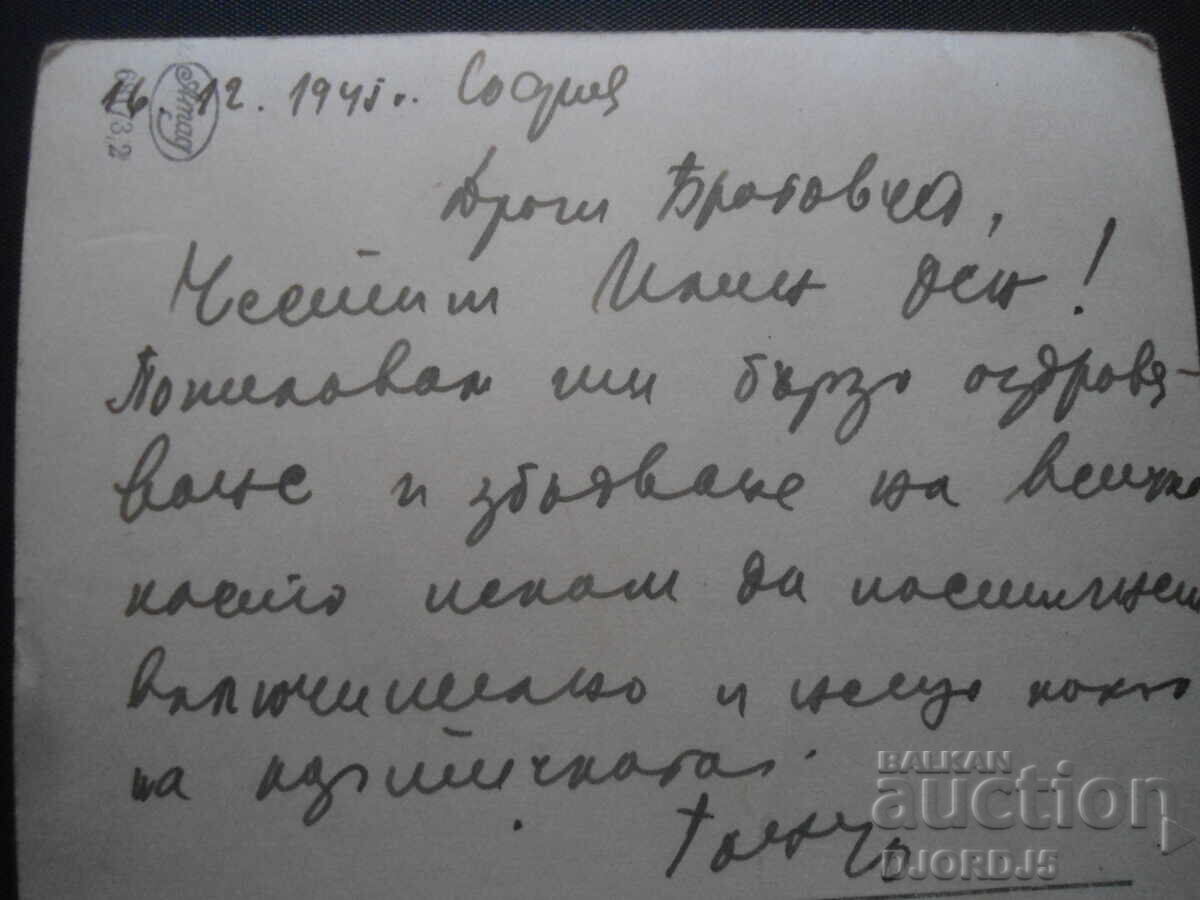 16.12.1945 г. София
Драги Братовчед,
Честит имен ден!
Пожелавам ти бързо оздравя-
ване и сбъдване на всичко
което искам да постигнеш
включително и нещо което
на картичката.
6173,2
BALKAN
auction
DJORDJ5